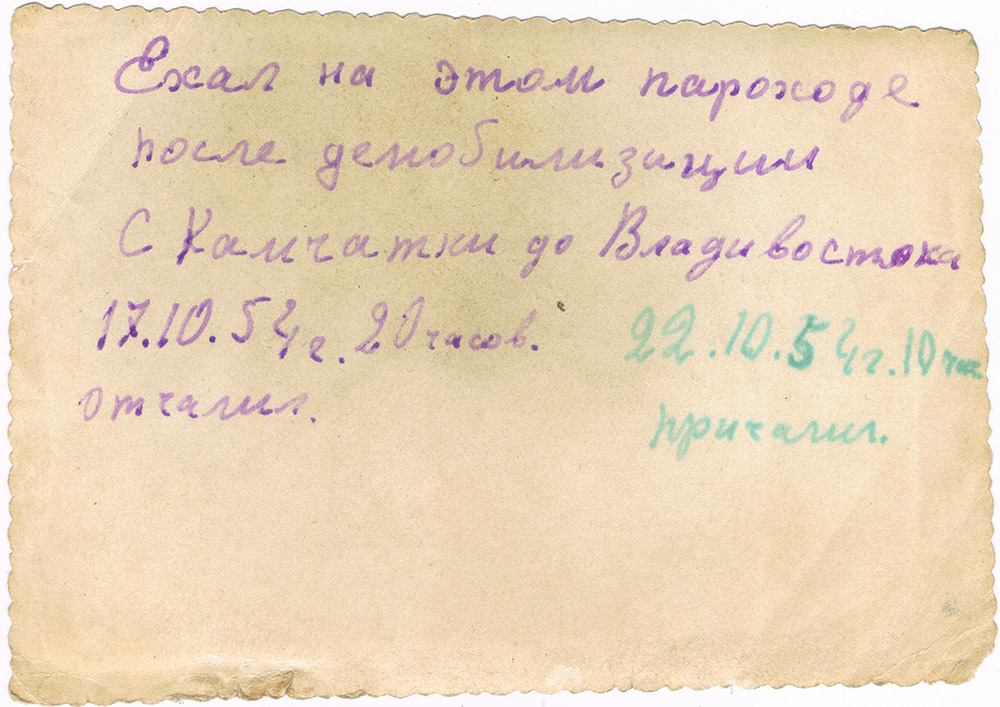 Ехал на этом пароходе
после демобилизации
С Камчатки до Владивостока
17.10.54г. 20 часов.
отчалил.
22.10.54г. 10 час.
причалил.